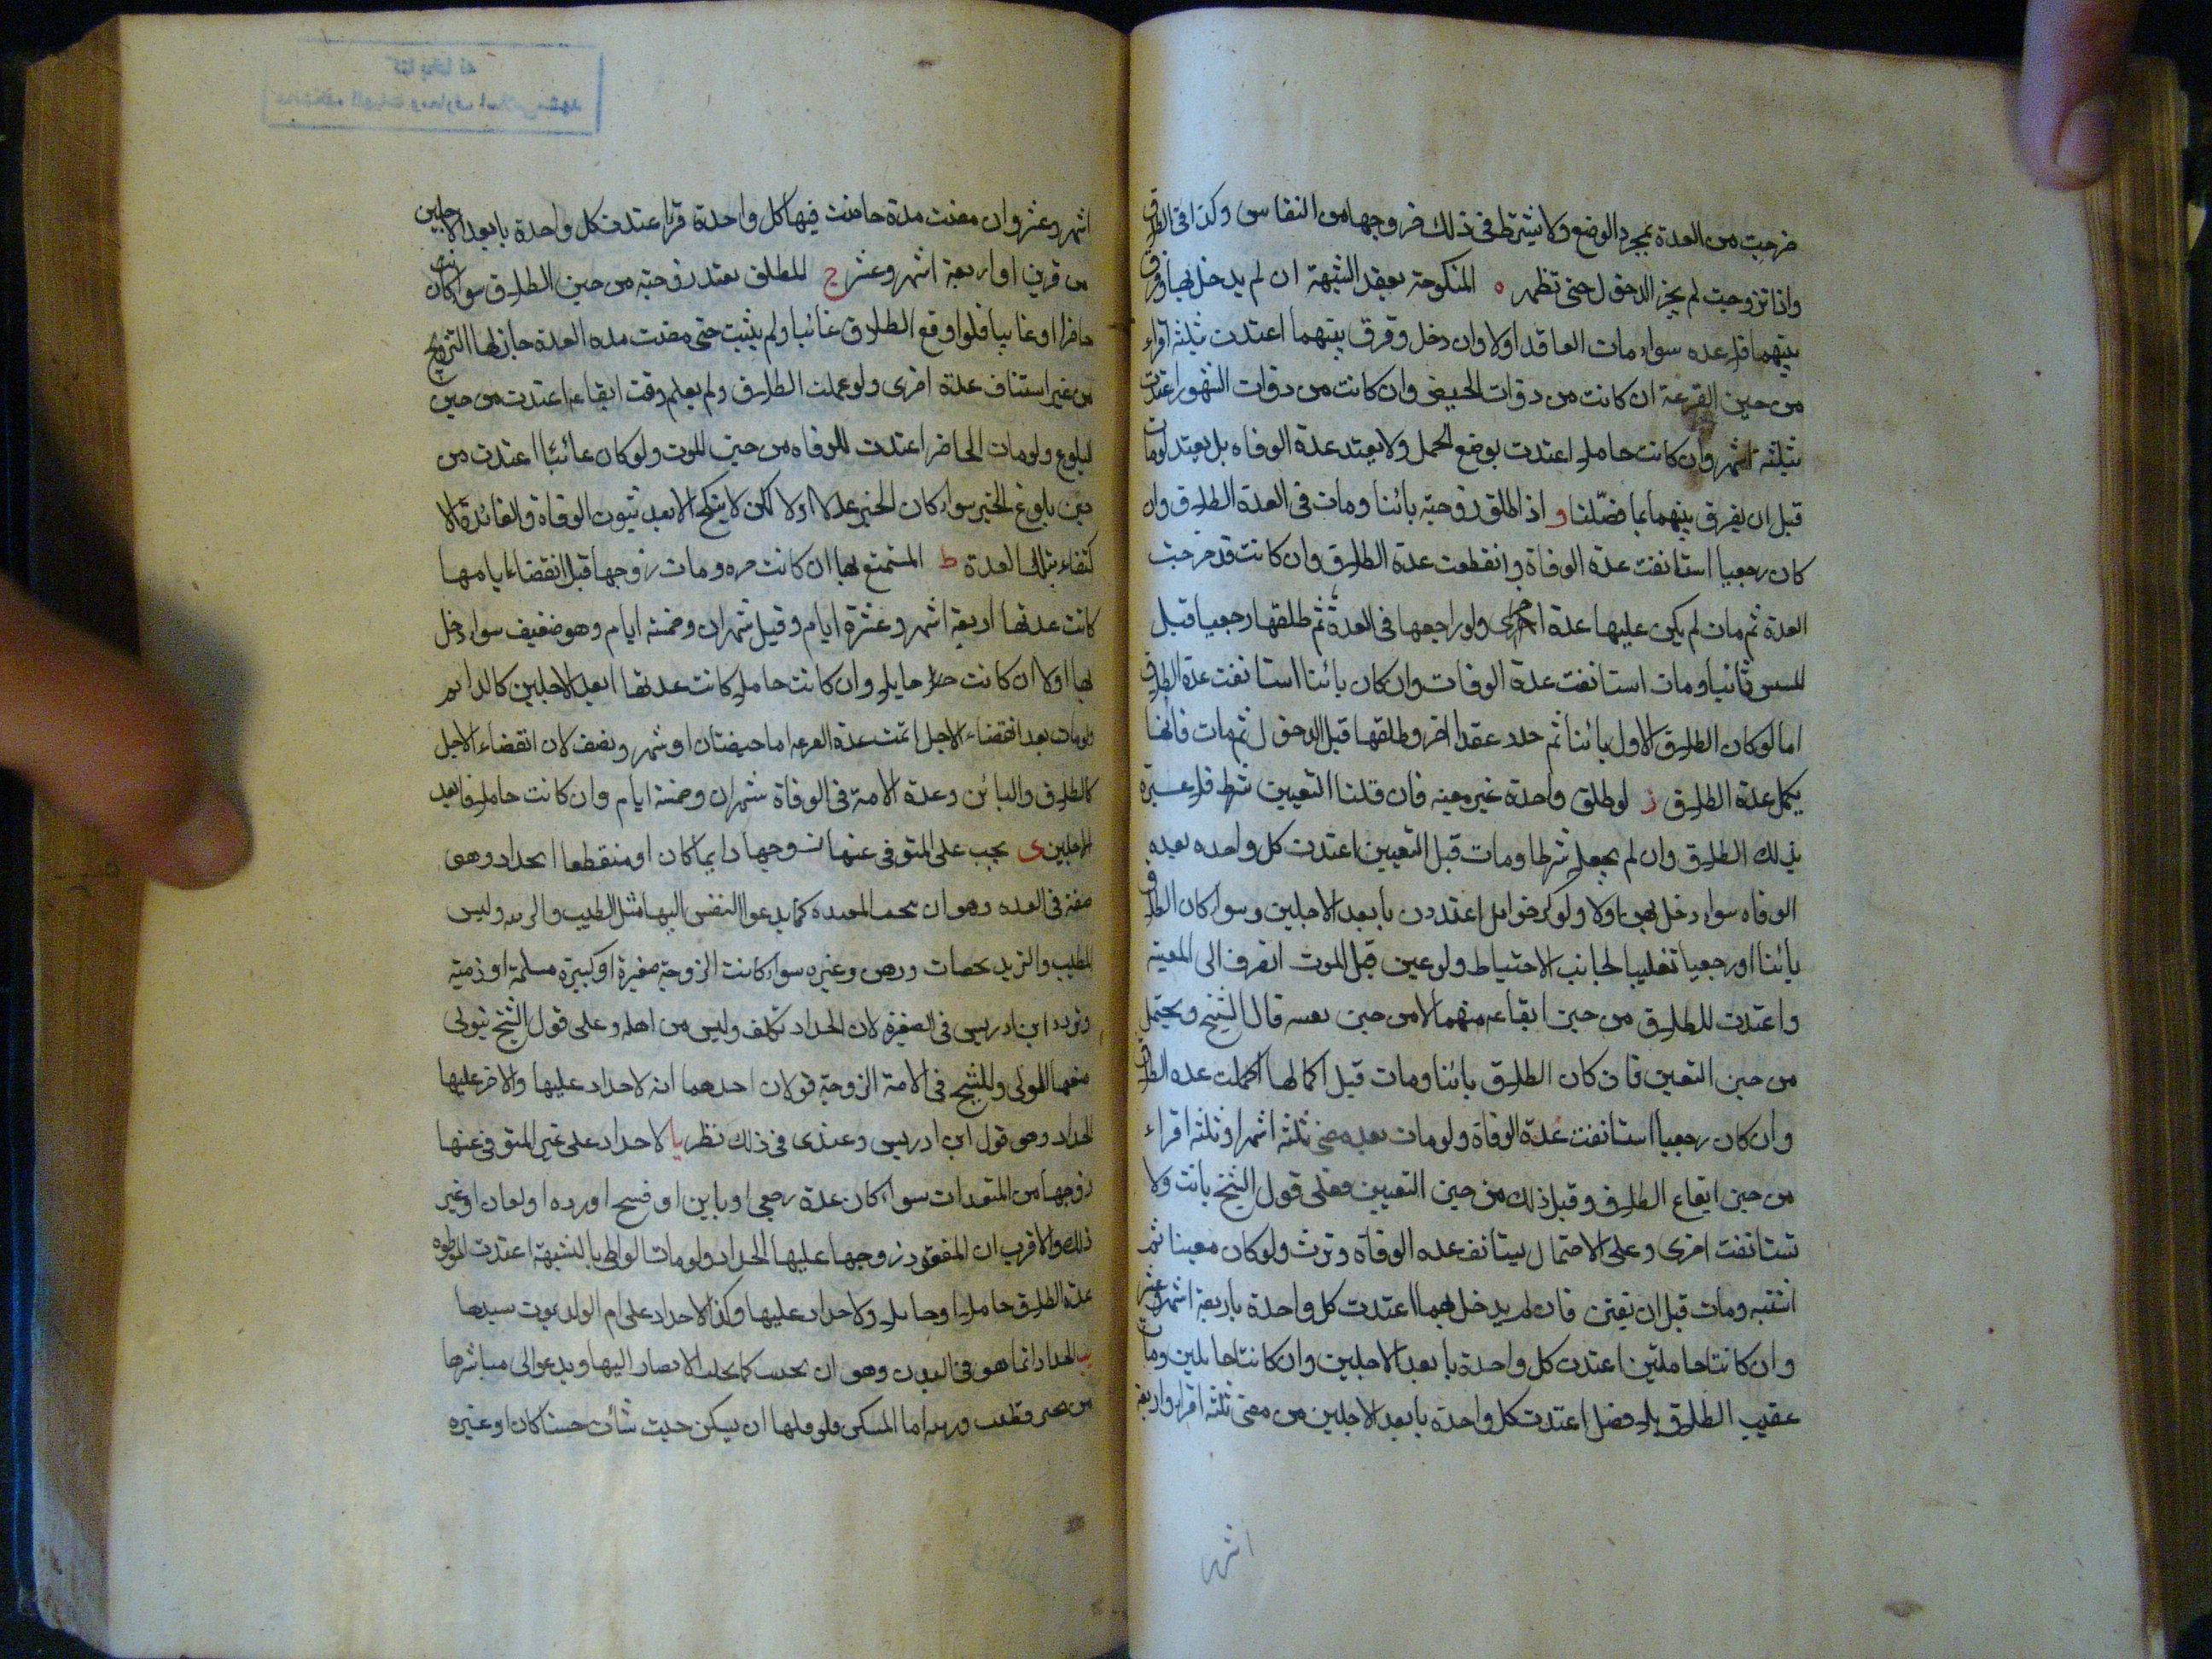 خرجت من العدة بمجرد الوضع ولا يشترط في ذلك خروجها من النفاس وكذا في الطلاق
واذا تزوجت لم يجز الدخول حتى تطهر ه المنكوحة بعقد الشبهة ان لم يدخل بها وفرق
بينهما فلا عده سواء مات العاقد اولا وان دخل وفرق بينهما اعتدت بثلثة اقراء
من حين الفرقة ان كانت من ذوات الحيض وان كانت من ذوات الشهور اعتدت
بثلثة اشهر وان كانت حاملا اعتدت بوضع الحمل ولا يعتد عدة الوفاه بل يعتد لومات
قبل ان يفرق بينهما بما فصّلنا و اذا طلق زوجته بائنا ومات في العدة الطلاق وان
كان رجعيا استانفت عدة الوفاة وانقطعت عدة الطلاق وان كانت قد خرجت
العدة ثم مات لم يكن عليها عدة اخرى ولو راجعها في العدة ثم طلقها رجعيا قبل
المسس ثانيا ومات استانفت عدة الوفات وان كان بائنا استانفت عدة الطلاق
اما لوكان الطلاق الاول بائنا ثم جدد عقدا اخر وطلقها قبل الدخول ثم مات فانها
يكمل عدة الطلاق ز لوطلق واحدة غير معينه فان قلنا التعيين شرط فلا عبرة
بذلك الطلاق وان لم يجعله شرطا ومات قبل التعيين اعتدت كل واحده بعده
الوفاه سواء دخل بهن اولا ولو كن حوامل اعتددن بابعد الاجلين وسواء كان الطلاق
بائنا او رجعيا تغليبا لجانب الاحتياط ولو عين قبل الموت انصرف الى المعينه
واعتدت للطلاق من حين ايقاعه منهما لا من حين تعينه قال الشيخ ويحتمل
من حين التعيين فان كان الطلاق بائنا ومات قبل اكمالها اكملت عده الطلاق
وان كان رجعيا استانفت عدة الوفاة ولومات بعد مضي ثلثه اشهر او ثلثه اقراء
من حين ايقاع الطلاق وقبل ذلك من حين التعيين فعلى قول الشيخ بانت ولا
تستانفت اخرى وعلى الاحتمال يستانف عده الوفاة وترث ولوكان معينا ثم
اشتبه ومات قبل ان يعين فان لم يدخل بهما اعتدت كل واحدة باربعة اشهر وعشر
وان كانتا حاملتين اعتدت كل واحدة بابعد الاجلين وان كانتا حايلين ومات
عقيب الطلاق بلا فصل اعتدت كل واحدة بابعد الاجلين من مضى ثلثه اقراء واربعة
اشهر
اشهر وعشر وان مضت مدة حاضت فيها كل واحدة قرءا اعتدت كل واحدة بابعد الاجلين
من قرين او اربعة اشهر وعشر ح المطلق يعتد زوجته من حين الطلاق سواء كان
حاضرا او غايبا فلو اوقع الطلاق غائبا ولم يثبت حتى مضت مده العدة جاز لها التزويج
من غير استناف عدة اخرى ولو علمت الطلاق ولم يعلم وقت ايقاعه اعتدت من حين
البلوغ ولومات الحاضر اعتدت للوفاه من حين الموت ولوكان غائبا اعتدت من
حين بلوغ الخبر سواء كان المخبر عدلا اولا لكن لا ينكح الا بعد ثبوت الوفاة والفائدة الا
كتفاء بتلك العدة ط المستمتع بها ان كانت حره ومات زوجها قبل انقضاء ايامها
كانت عدتها اربعة اشهر وعشرة ايام وقيل شهران وخمسة ايام وهو ضعيف سواء دخل
بها اولا ان كانت حايلا وان كانت حاملا كانت عدتها ابعد الاجلين كالدايم
ولومات بعد انقضاء الاجل اتمت عدة الفرقه اما حيضتان او شهر ونصف لان انقضاء الاجل
كالطلاق والبائن وعدة الامة في الوفاة شهران وخمسة ايام وان كانت حاملا فابعد
الاجلين ى يجب على المتوفى عنها زوجها دايما كان او منقطعا الحداد وهى
صفة في العده وهو ان المعتده كما يدعوا النفس اليها مثل الطيب والزينه ولبس
المطيب والتزيد وغيره سواء كانت الزوجة صغيرة او كبيرة مسلمة او ذمية
وتردد ابن ادريس في الصغيرة لان الحداد تكلف وليس من اهله وعلى قول الشيخ يتولى
منعها المولى وللشيخ في الامة الزوجة قولان احدهما انه لا حداد عليها والاخر عليها
الحداد وهى قول ابن ادريس وعندى في ذلك نظر يا لا حداد على غير المتوفى عنها
زوجها من المعتدات سواء كان عدة رجعي او باين او فسخ او رده او لعان او غير
ذلك والاقرب ان المفقود زوجها عليها الحداد ولومات الواطى بالشبهة اعتدت الموطوه
عدة الطلاق حاملا او حايلا ولا حداد عليها وكذا لا حداد على ام الولد بموت سيدها
يب الحداد انما هو في البدن وهو ان الابصار اليها ويدعوالى مباشرتها
من اما المسكن فلها ان يسكن حيث شأت حسنا كان او غيره